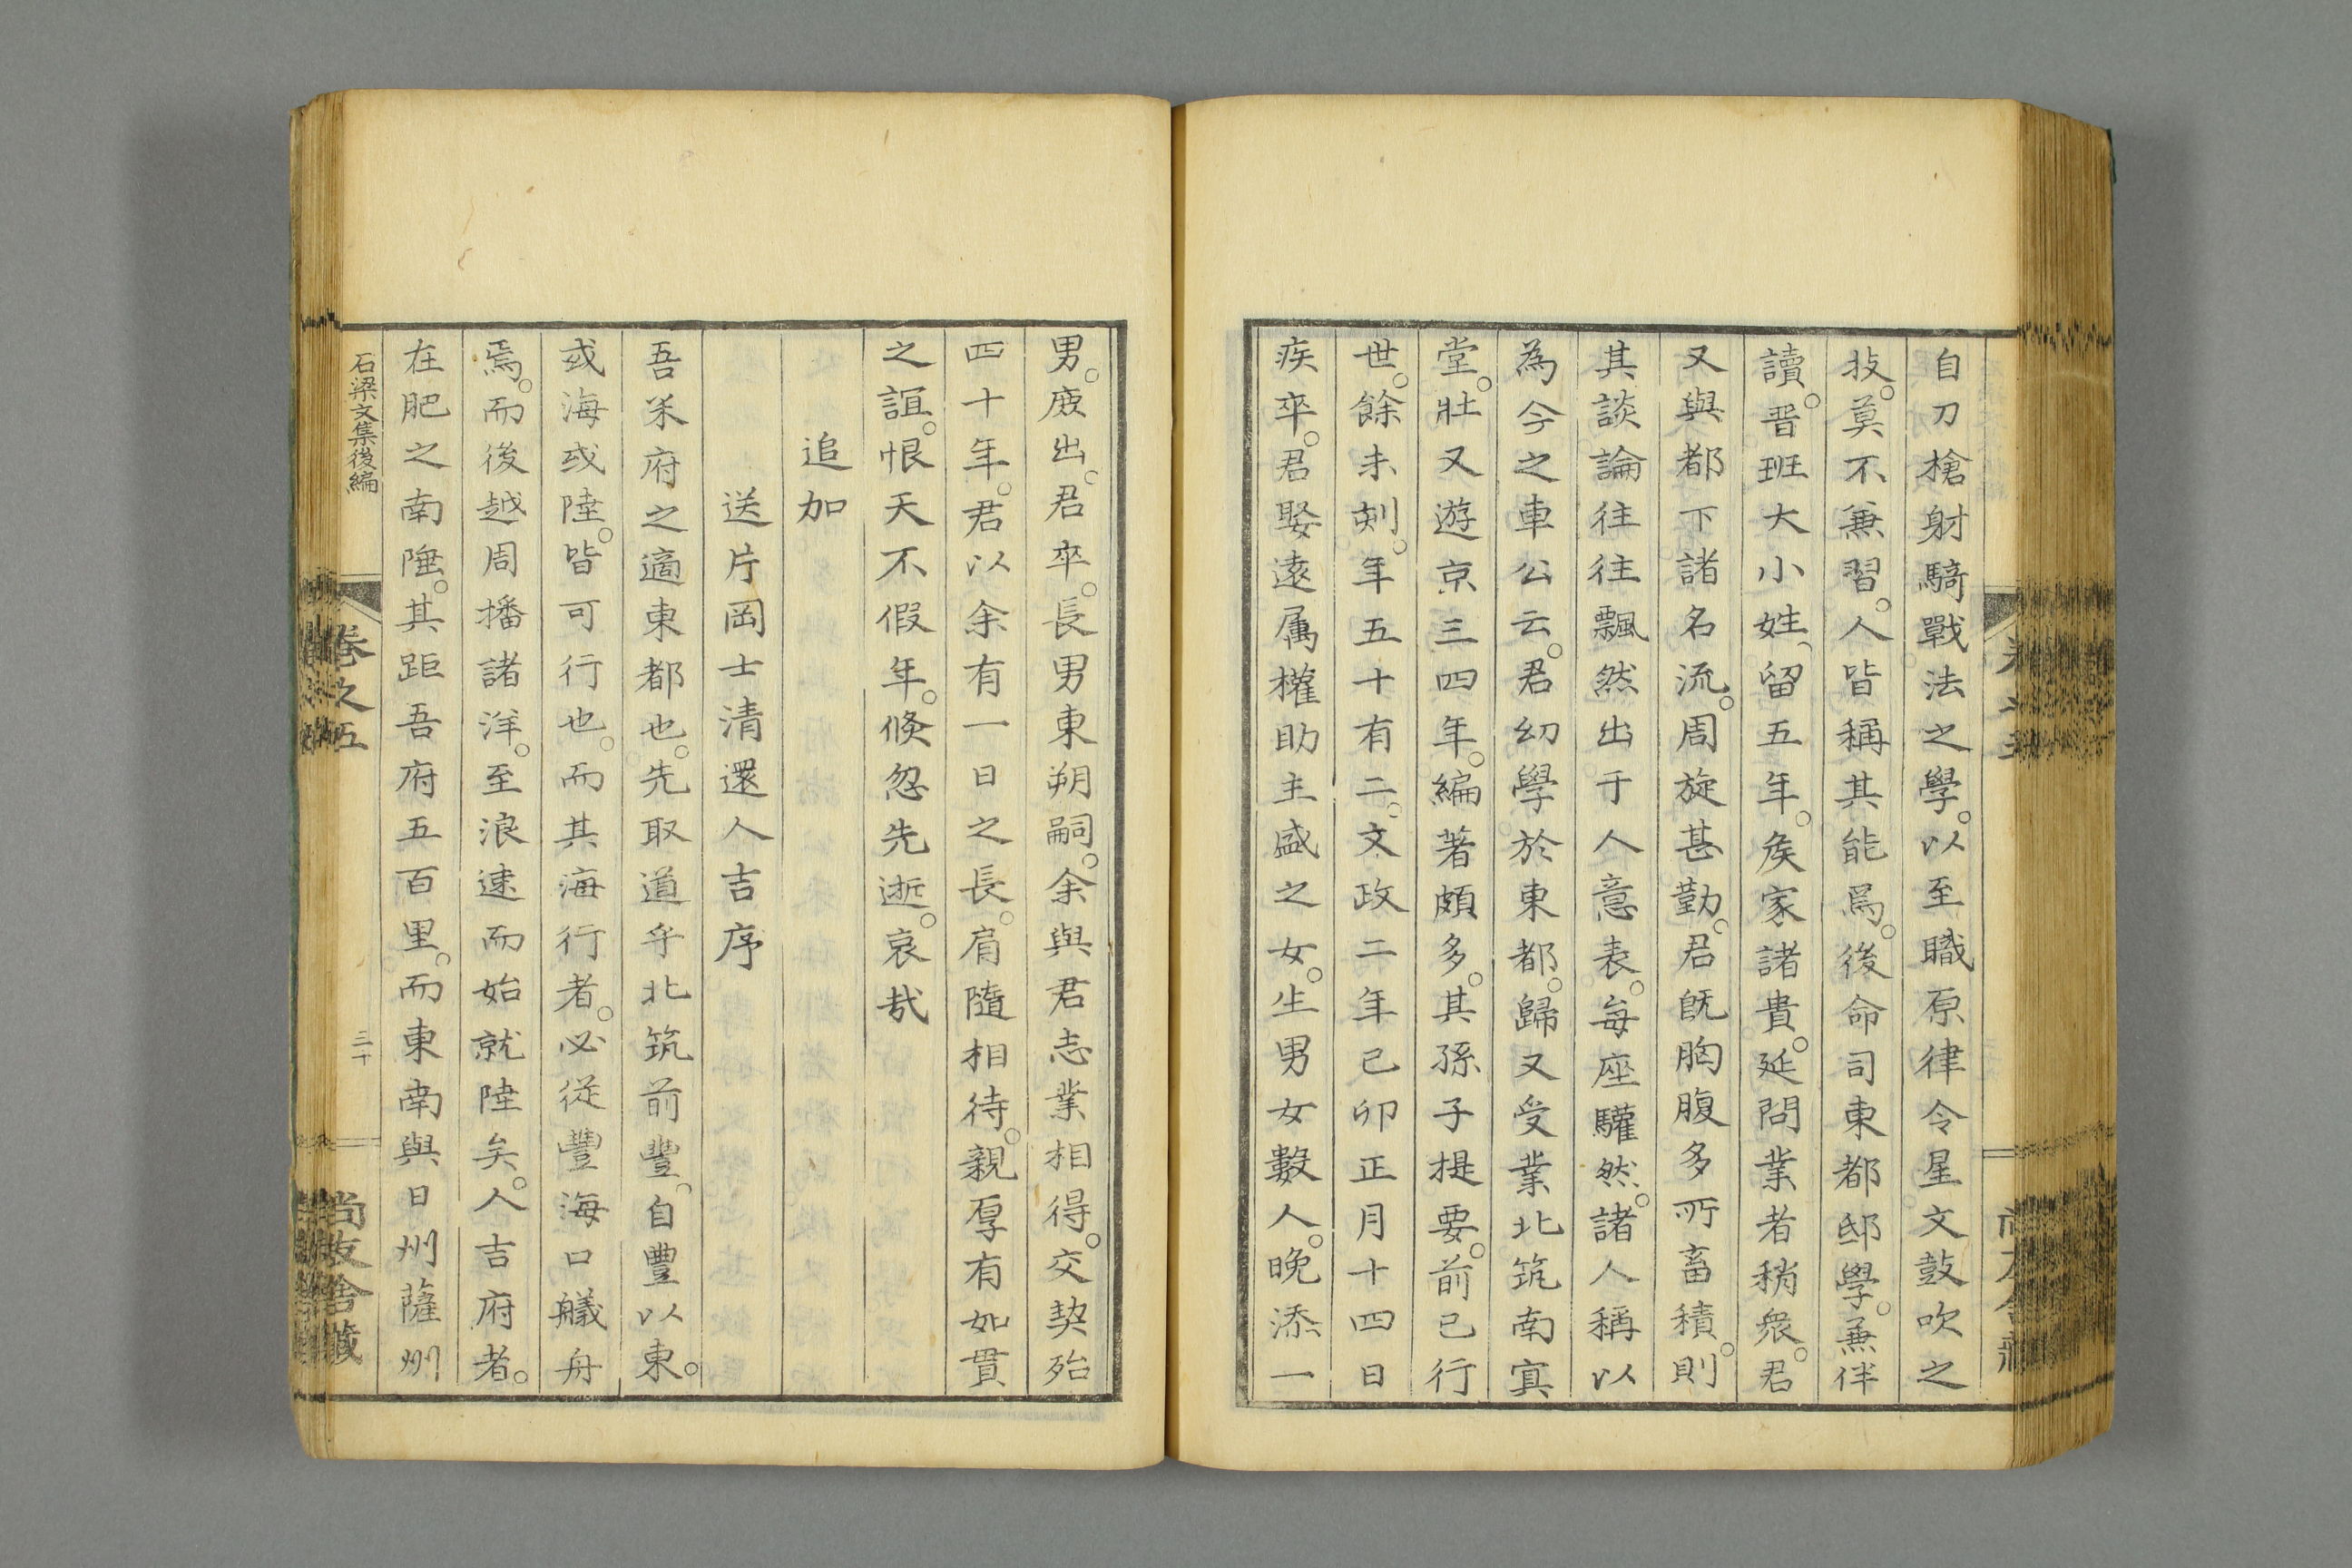 自刀槍射騎戰法之學。以至職原律令星文鼓吹之
技。莫不兼習。人皆稱其能焉。後命司東都邸學。兼伴
讀。晋班大小姓、留五年。矦家諸貴。延問業者稍衆。君
又與都下諸名流。周旋甚勤。君既胸腹多所畜積。則
其談論往往飄然出于人意表。每座驩然。諸人稱以
為今之車公云。君幼學於東都。歸又受業北筑南冥
堂。壯又遊京三四年。編著頗多。其孫子提要。前已行
世。餘未刻。年五十有二。文政二年己卯正月十四日
疾卒。君娶遠属權助主盛之女。生男女數人。晚添一
男。庶出。君卒。長男東朔嗣。余與君志業相得。交契殆
四十年。君以余有一日之長。肩隨相待。親厚有如貫
之誼。恨天不假年。倏忽先逝。哀哉
追加
送片岡士清還人吉序
吾米府之適東都也。先取道乎北筑前豐。自豐以東。
或海或陸。皆可行也。而其海行者。必從豐海口艤舟
焉。而後越周播諸洋。至浪速而始就陸矣。人吉府者。
在肥之南陲。其距吾府五百里。而東南與日州薩州
石梁文集後編
卷之五
三十
尚友舍藏